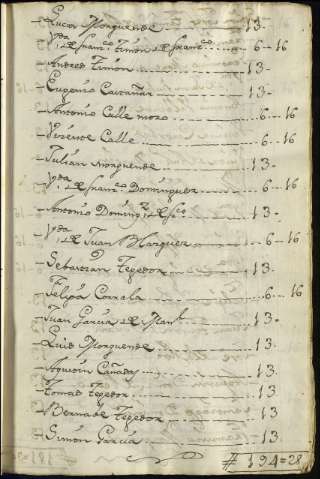 Lucas Monguende 13.
Vda. de franco. Simon de franco. 6..16
Andres Simon 13.
Eugenio Castañar 13.
Antonio Calle mozo 6..16
Vizente Calle 6..16
Julian Monguende 13.
Vda. de franco. Dominguez 6..16
Antonio Doming. de fco. 13.
Vda. de Juan Marquez 6..16
Sebastian Texedor 13.
Felipa Corrala 6..16
Juan Garcia de Man.l 13.
Luis Monguende 13.
Agustin Cañadas 13.
Tomas Texedor 13.
Berna.de Texedor 13.
Simon Garcia 13.
# 194=28